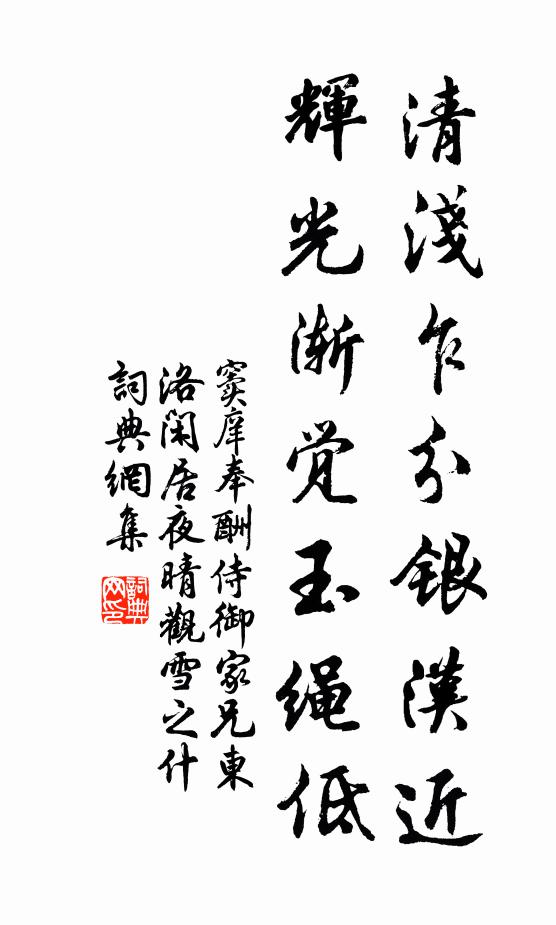 清淺乍分銀漢近
輝光渐觉玉绳低
窦庠奉酬侍御家兄東
洛闲居夜晴觀雪之什
詞典網集
詞典